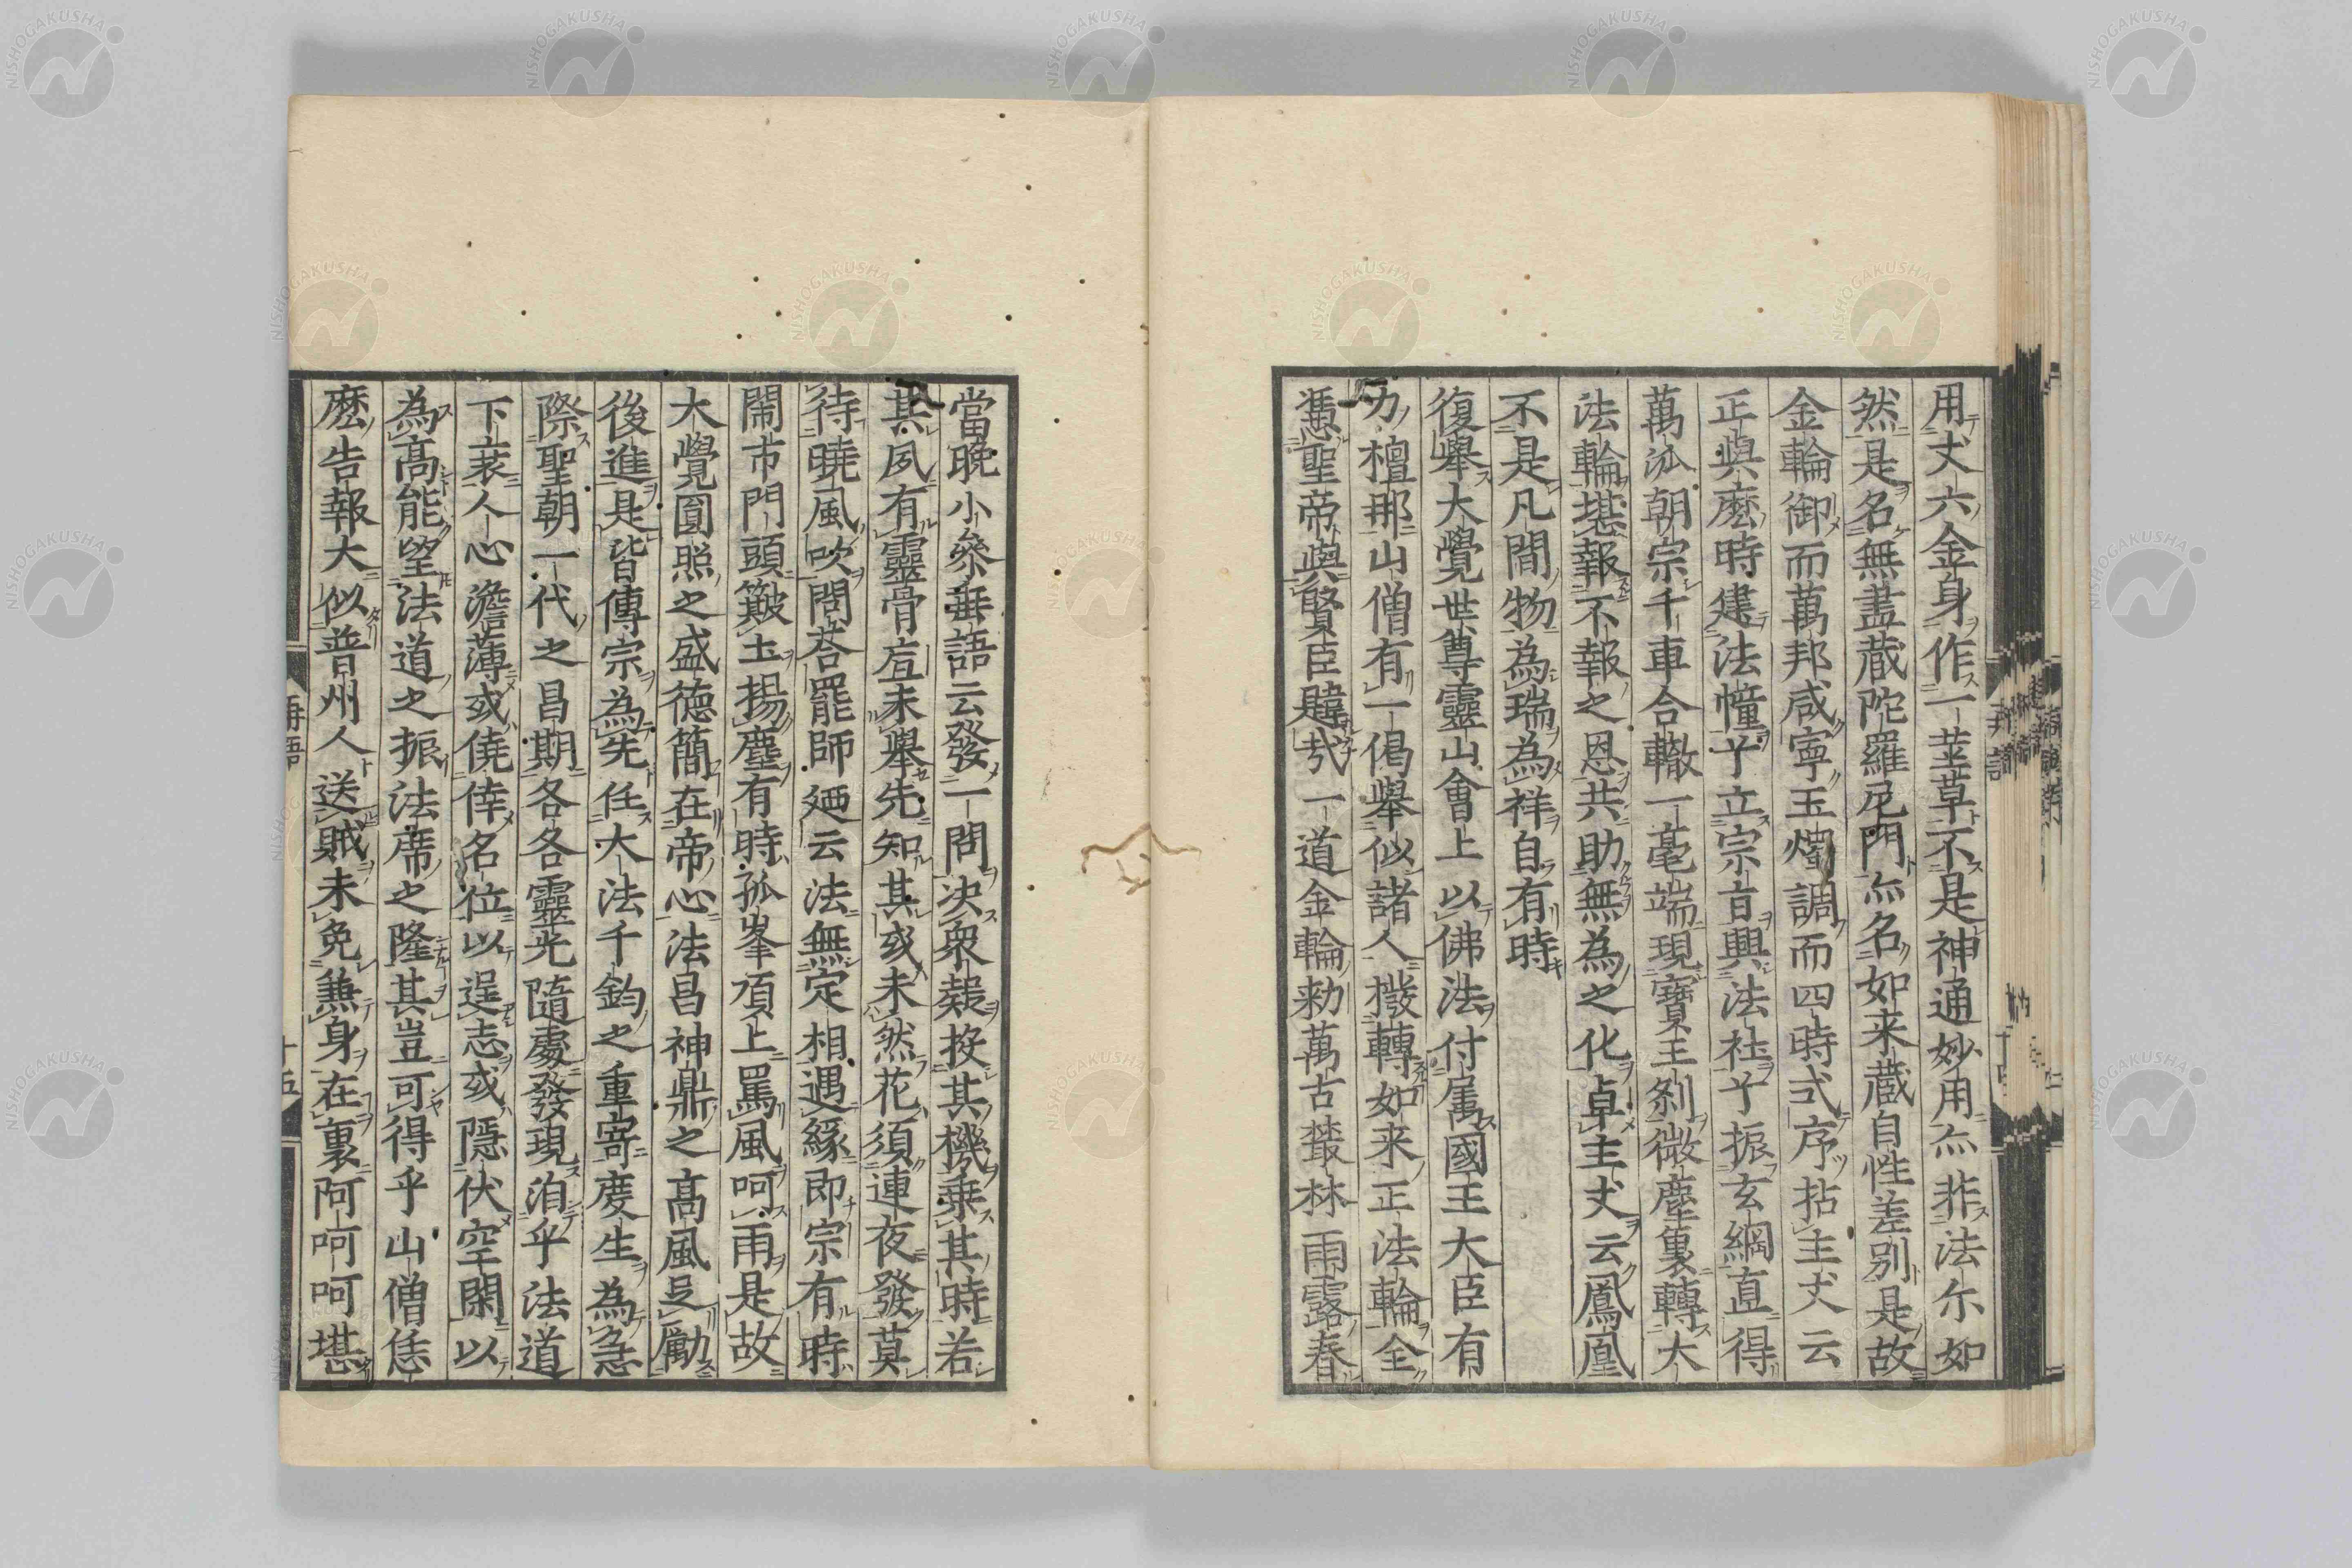 用丈六金身作一莖草不是神通妙用亦非法尓如
然是名無盡蔵陀羅尼門亦名如来蔵自性差別是故
金輪御而萬邦咸寧玉燭調而四時式序拈主丈云
正與麼時建法幢兮立宗旨興法社兮振玄綱直得
萬泒朝宗千車合轍一毫端現寶王刹微塵裏轉大
法輪堪報不報之恩共助無為之化卓主丈云鳳凰
不是凡間物為瑞為祥自有時
復舉大覺世尊靈山會上以佛法付属國王大臣有
力檀那山僧有一偈舉似諸人撥轉如来正法輪全
憑聖帝與賢臣韙㦲一道金輪勅萬古叢林雨露春
當晚小叅垂語云發一問决衆疑投其機乗其時若
其夙有靈骨底未舉先知其或未然花須連夜發莫
待曉風吹問荅罷師廼云法無定相遇緣即宗有時
閙市門頭簸土揚塵有時孤峯頂上罵風呵雨是故
大覺圓照之盛徳簡在帝心法昌神鼎之高風足勵
後進是皆傳宗為先任大法千鈞之重寄慶生為急
際聖朝一代之昌期各各靈光隨處發現洎乎法道
下衰人心澹薄或僥倖名位以逞志或隱伏空閑以
為高能望法道之振法席之隆其豈可得乎山僧恁
麼告報大似普州人送賊未免兼身在裏阿呵呵堪
語
十五
NISHOGAKUSHA